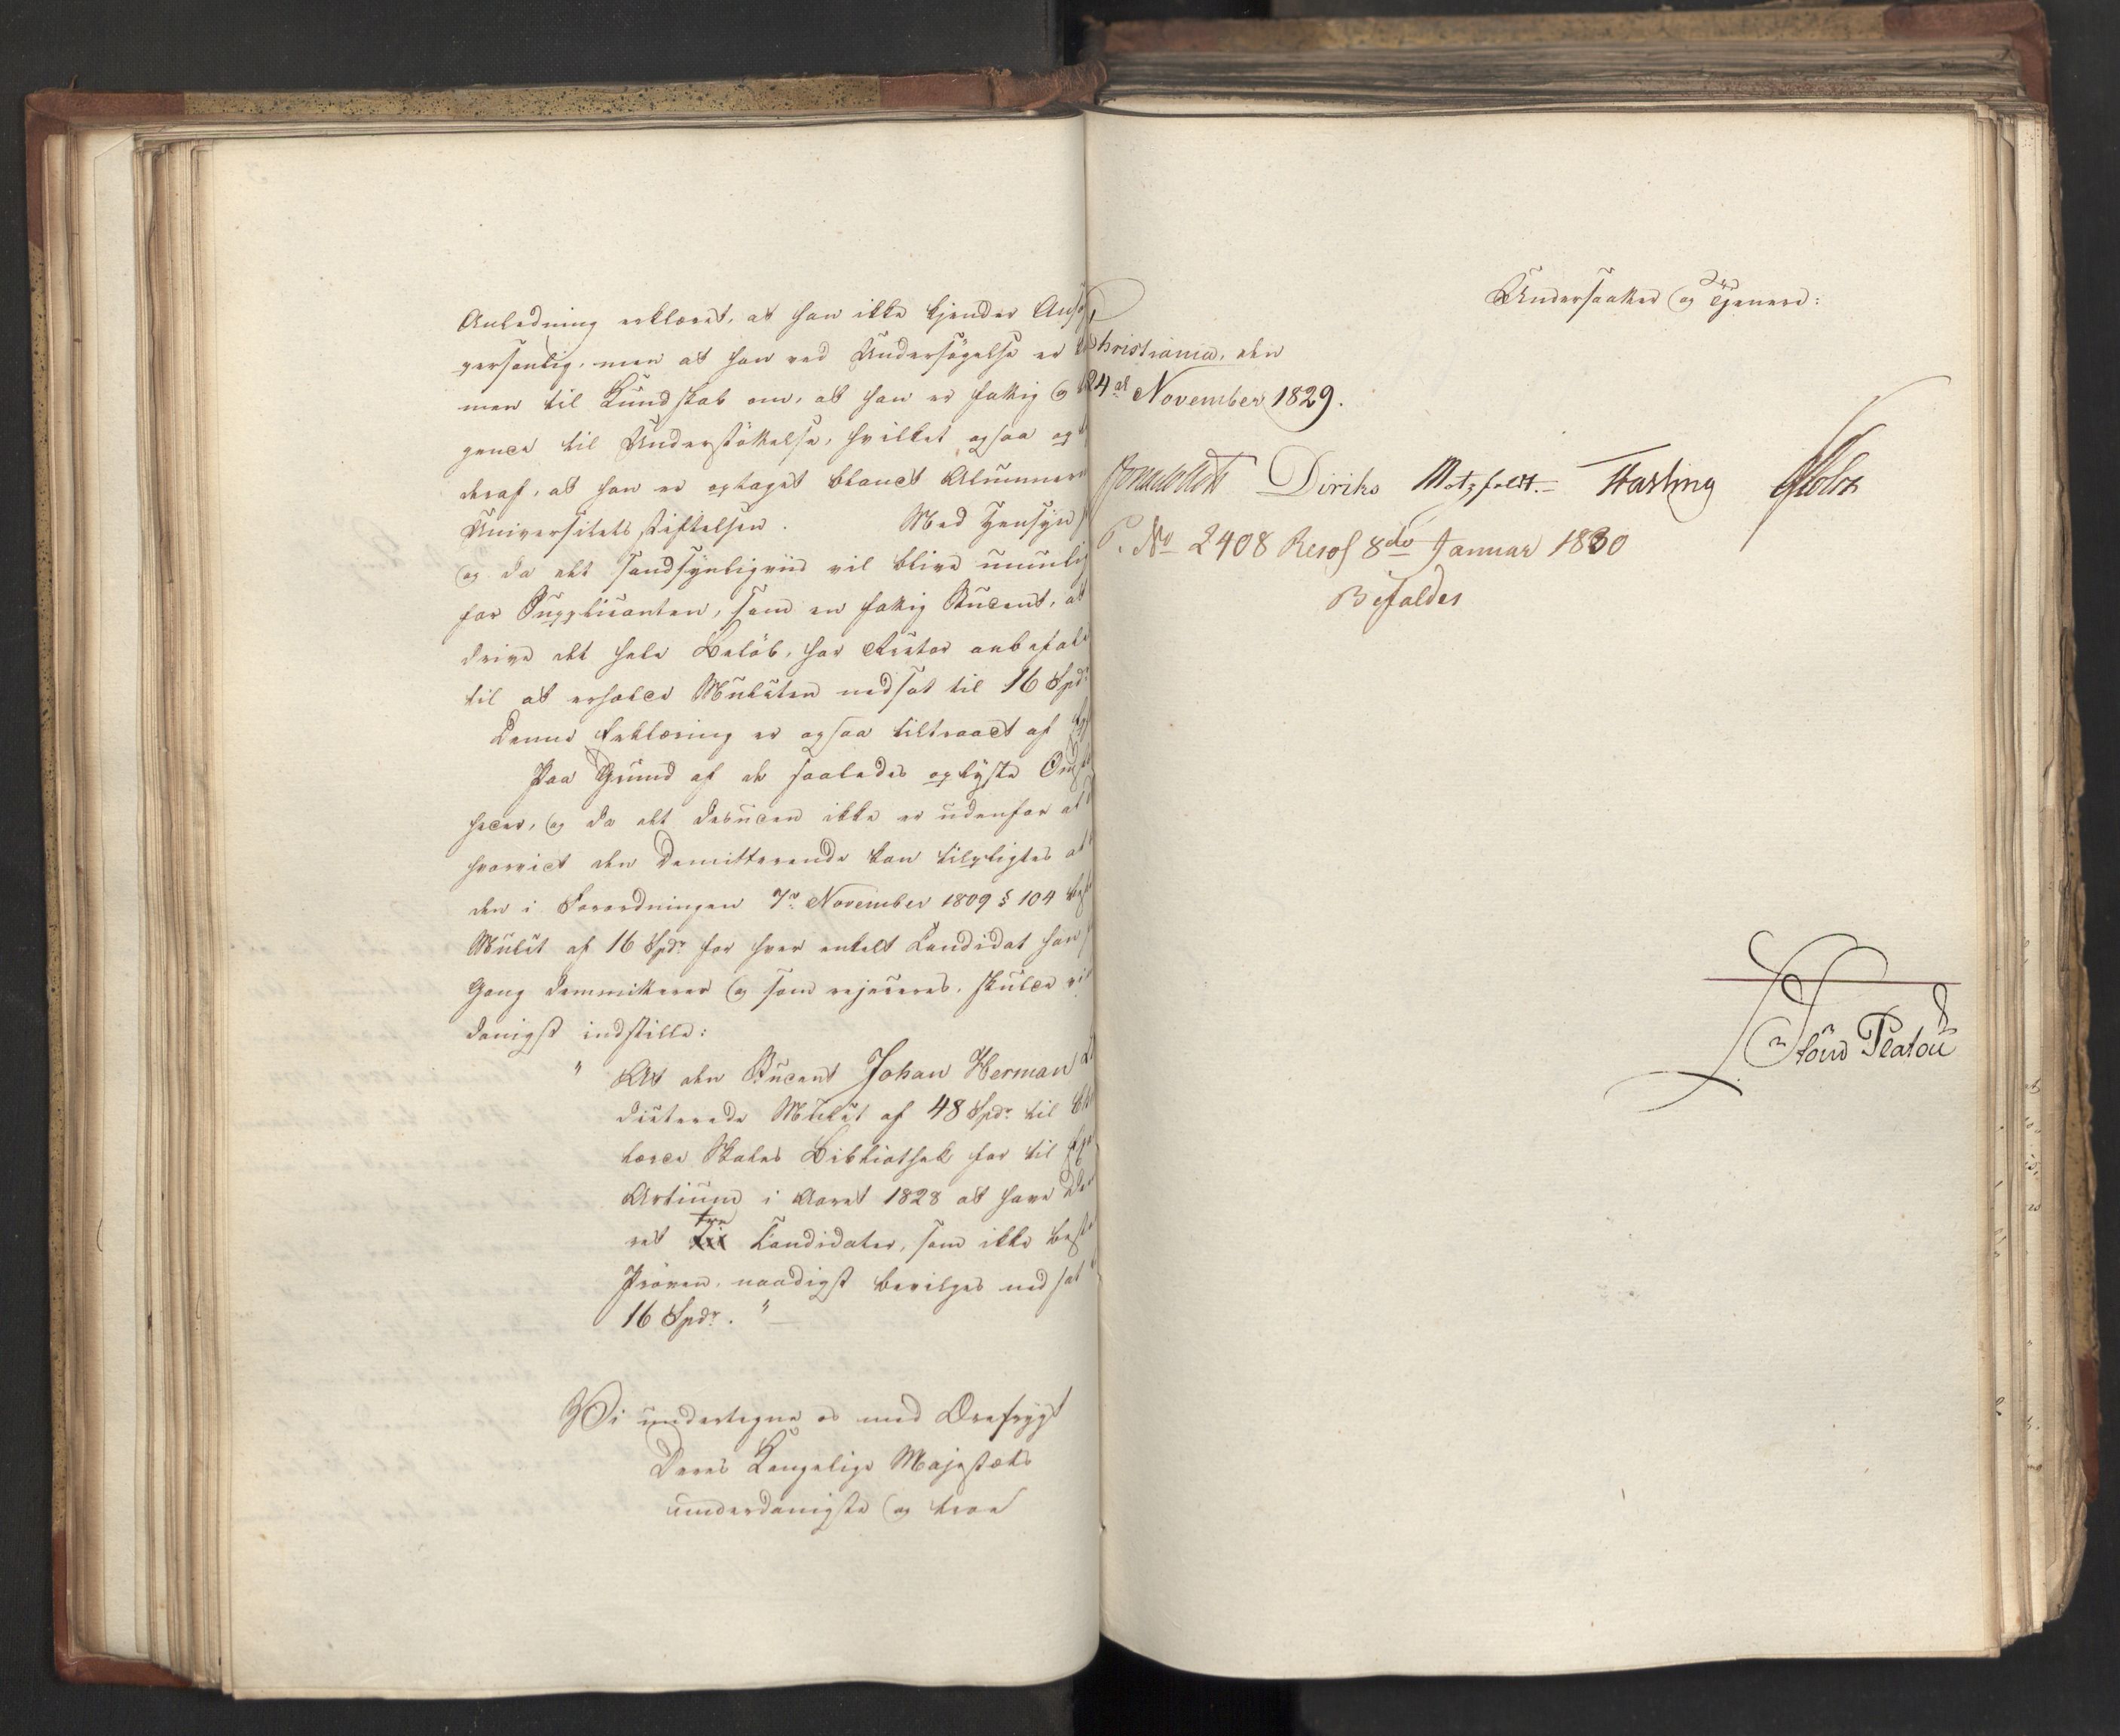 Anledning erklæret, at han ikke kjender Ansø
personlig, men at han ved Undersøgelse er k
men til Kundskab om, at han er fattig og
gende til Understøttelse, hvilket ogsaa op
deraf, at han er optaget blandt Alumnern
Universitetsstiftelsen. Med Hensyn
og da det sandsynligviis vil blive umulig
for Supplicanten, som en fattig Student, at
drive det hele Beløb, har Rector anbefale
til at erholde Mulcten nedsat til 16 Spdr
Denne Erklæring er ogsaa tiltraadt af
Paa Grund af de saaledes oplyste Oms
heder, og da det desuden ikke er udenfor al
hvorvidt den Demitterende kan tilpligtes at
den i Forordningen 7de November 1809 § 104
Mulct af 16 Spdr for hver enkelt Candidat han
Gang demmitterer og som rejiceres, skulde vi
danigst indstille:
" At den Student Johan Herman
dicterede Mulct af 48 Spdr til
lærde Skoles Bibliothek for til
Artium i Aaret 1828 at have
ret tre Candidater, som ikke best
Prøven, naadigst bevilges nedsat
16 Spdr. "
Vi undertegne os med Ærefrygt
Deres Kongelige Majestæts
underdanigste og troe
Undersaatter og Tjenere:
Christiania, den
24de November 1829.
Diriks Motzfeldt. Fasting
P. No 2408 Resol 8de Januar 1830
Bifaldes
Stoud Platou